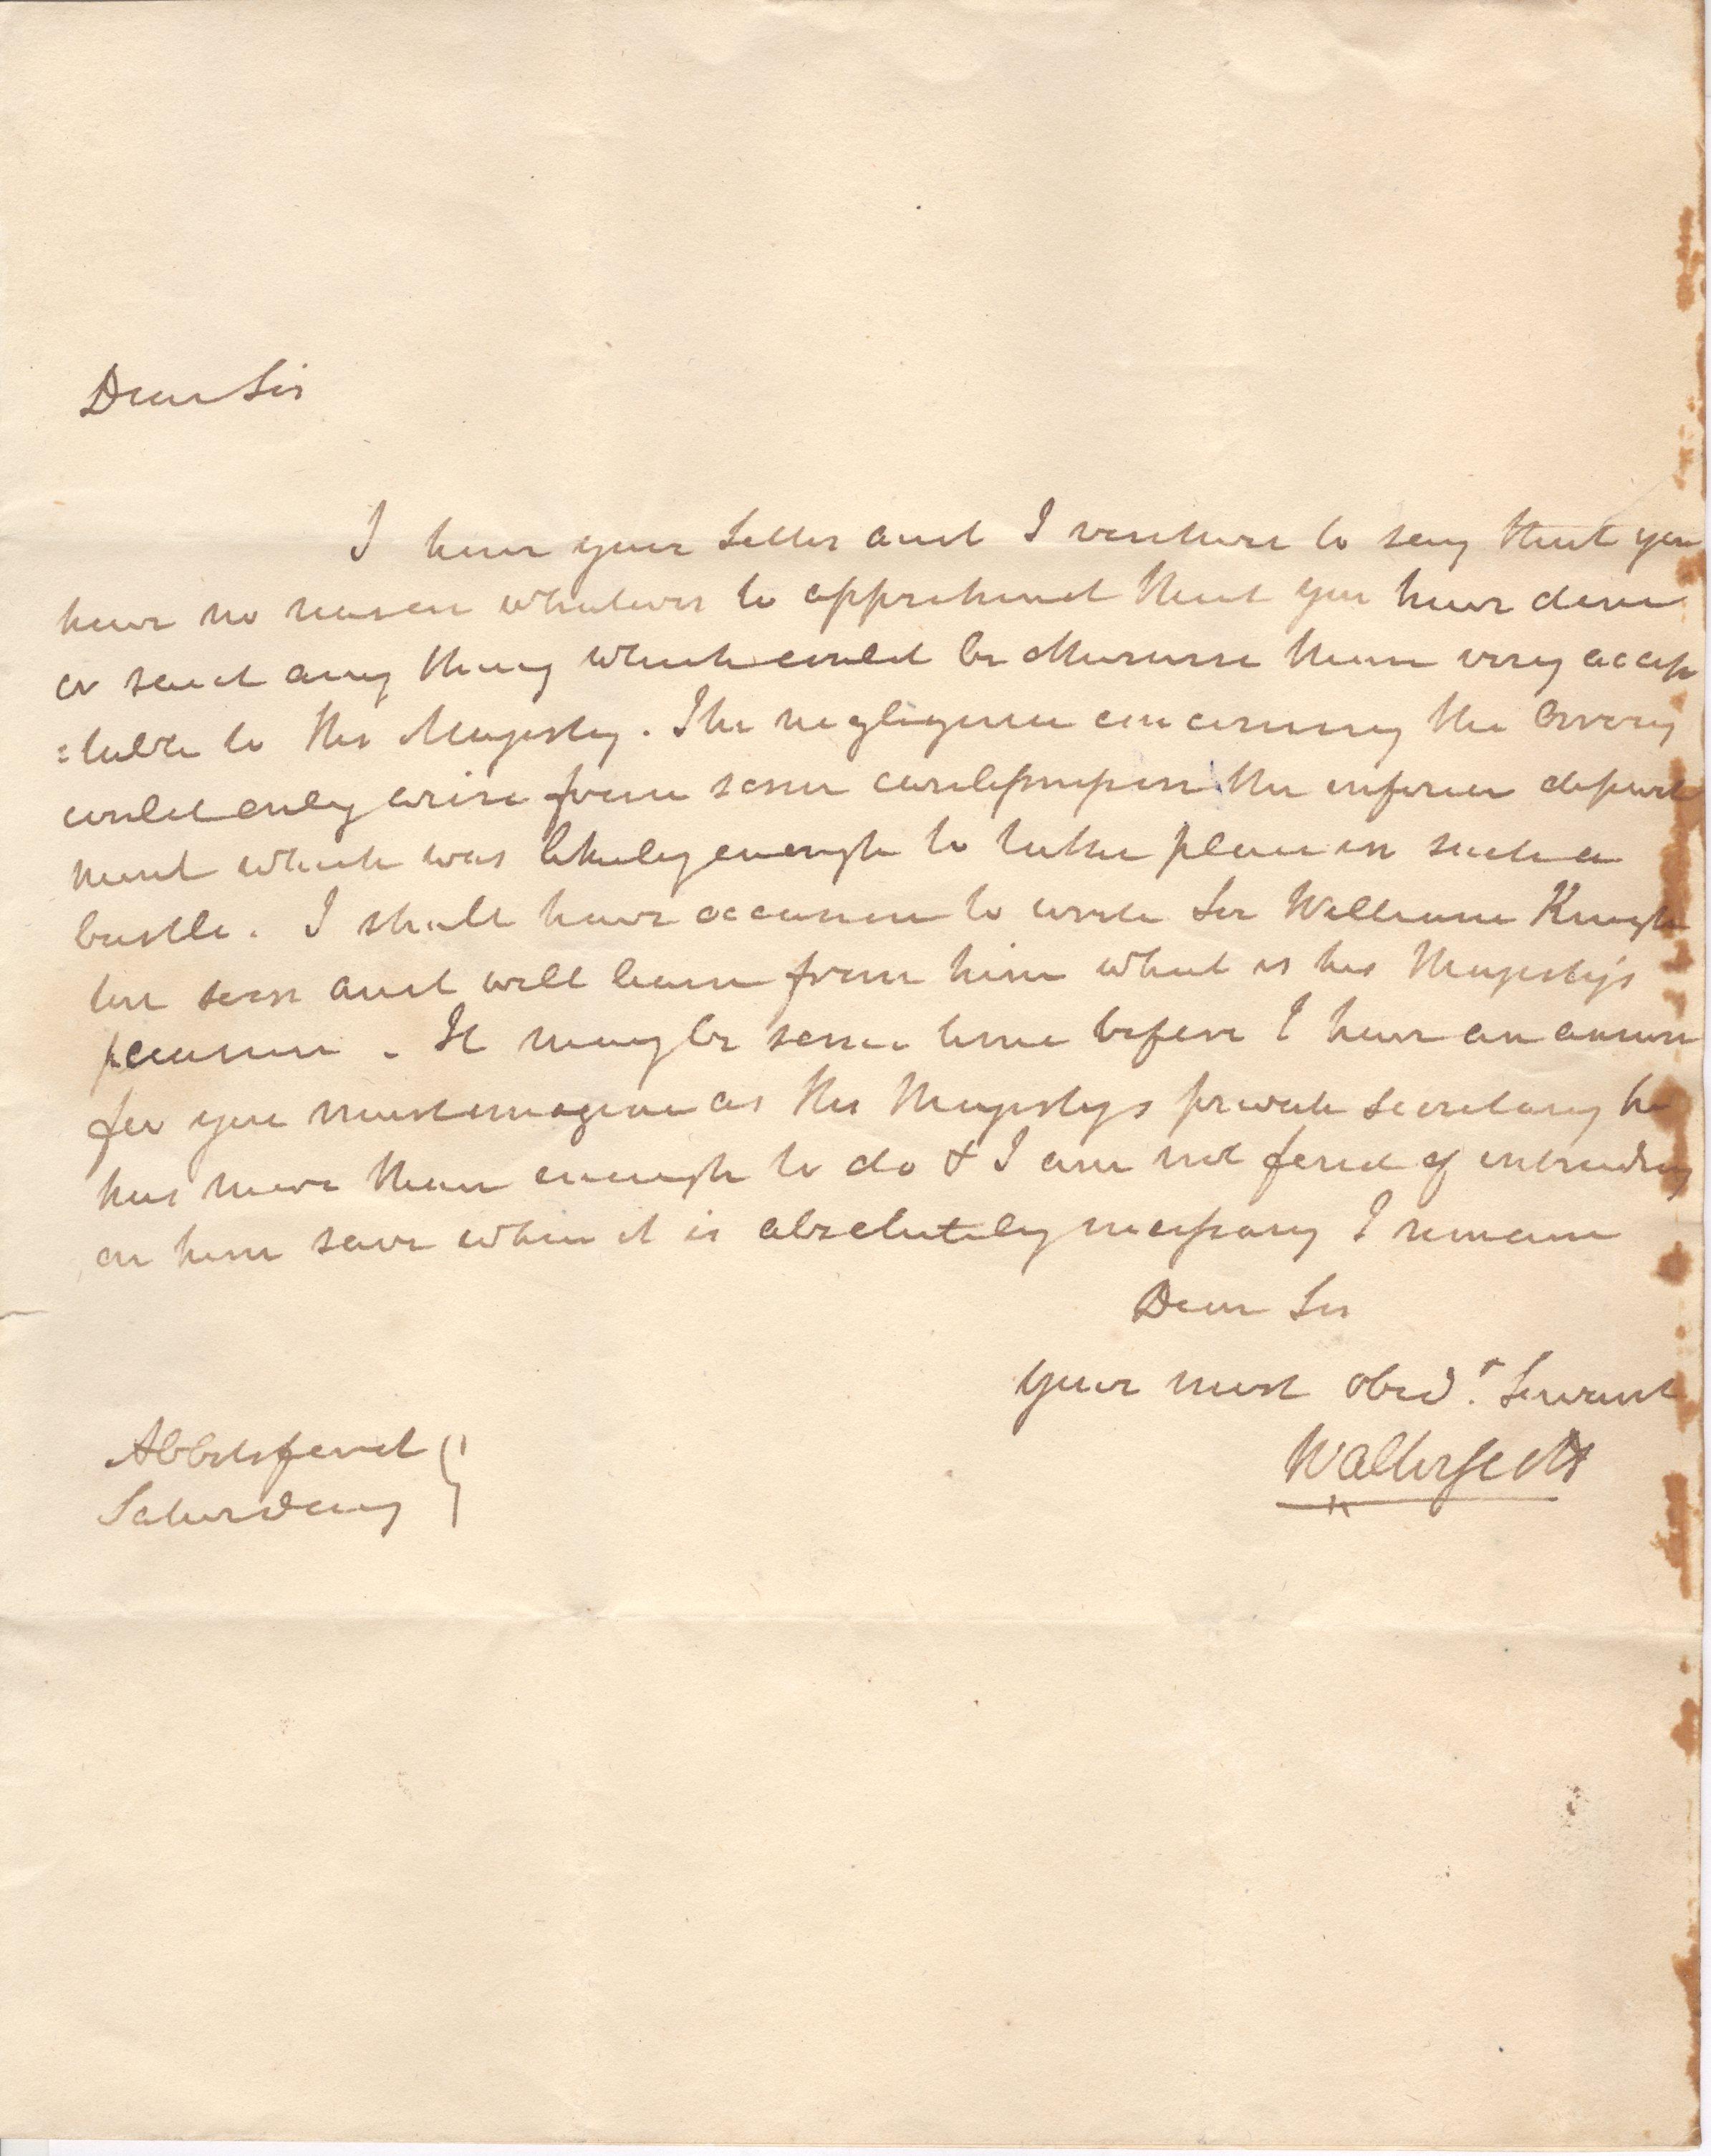 Dear Sir
I have your letter and I venture to say that you
have no reason whatever to apprehend that you have done
or said any thing which could be otherwise than very accep
=table to His Majesty. The negligence concerning the
could only arise from some carelessness in the inferior depart
ment which was likely enough to take place in such a
bustle. I shall have occasion to write Sir William Knigh
ton soon and will learn from him what is his Majesty's
pleasure. It may be some time before I have an answer
for you must imagine as His Majestys private secretary he
has more than enough to do & I am not fond of intruding
on him save when it is absolutely necessary I remain
Dear Sir
Your most obed.t Servant
Walter Scott
Abbotsford
Saturday